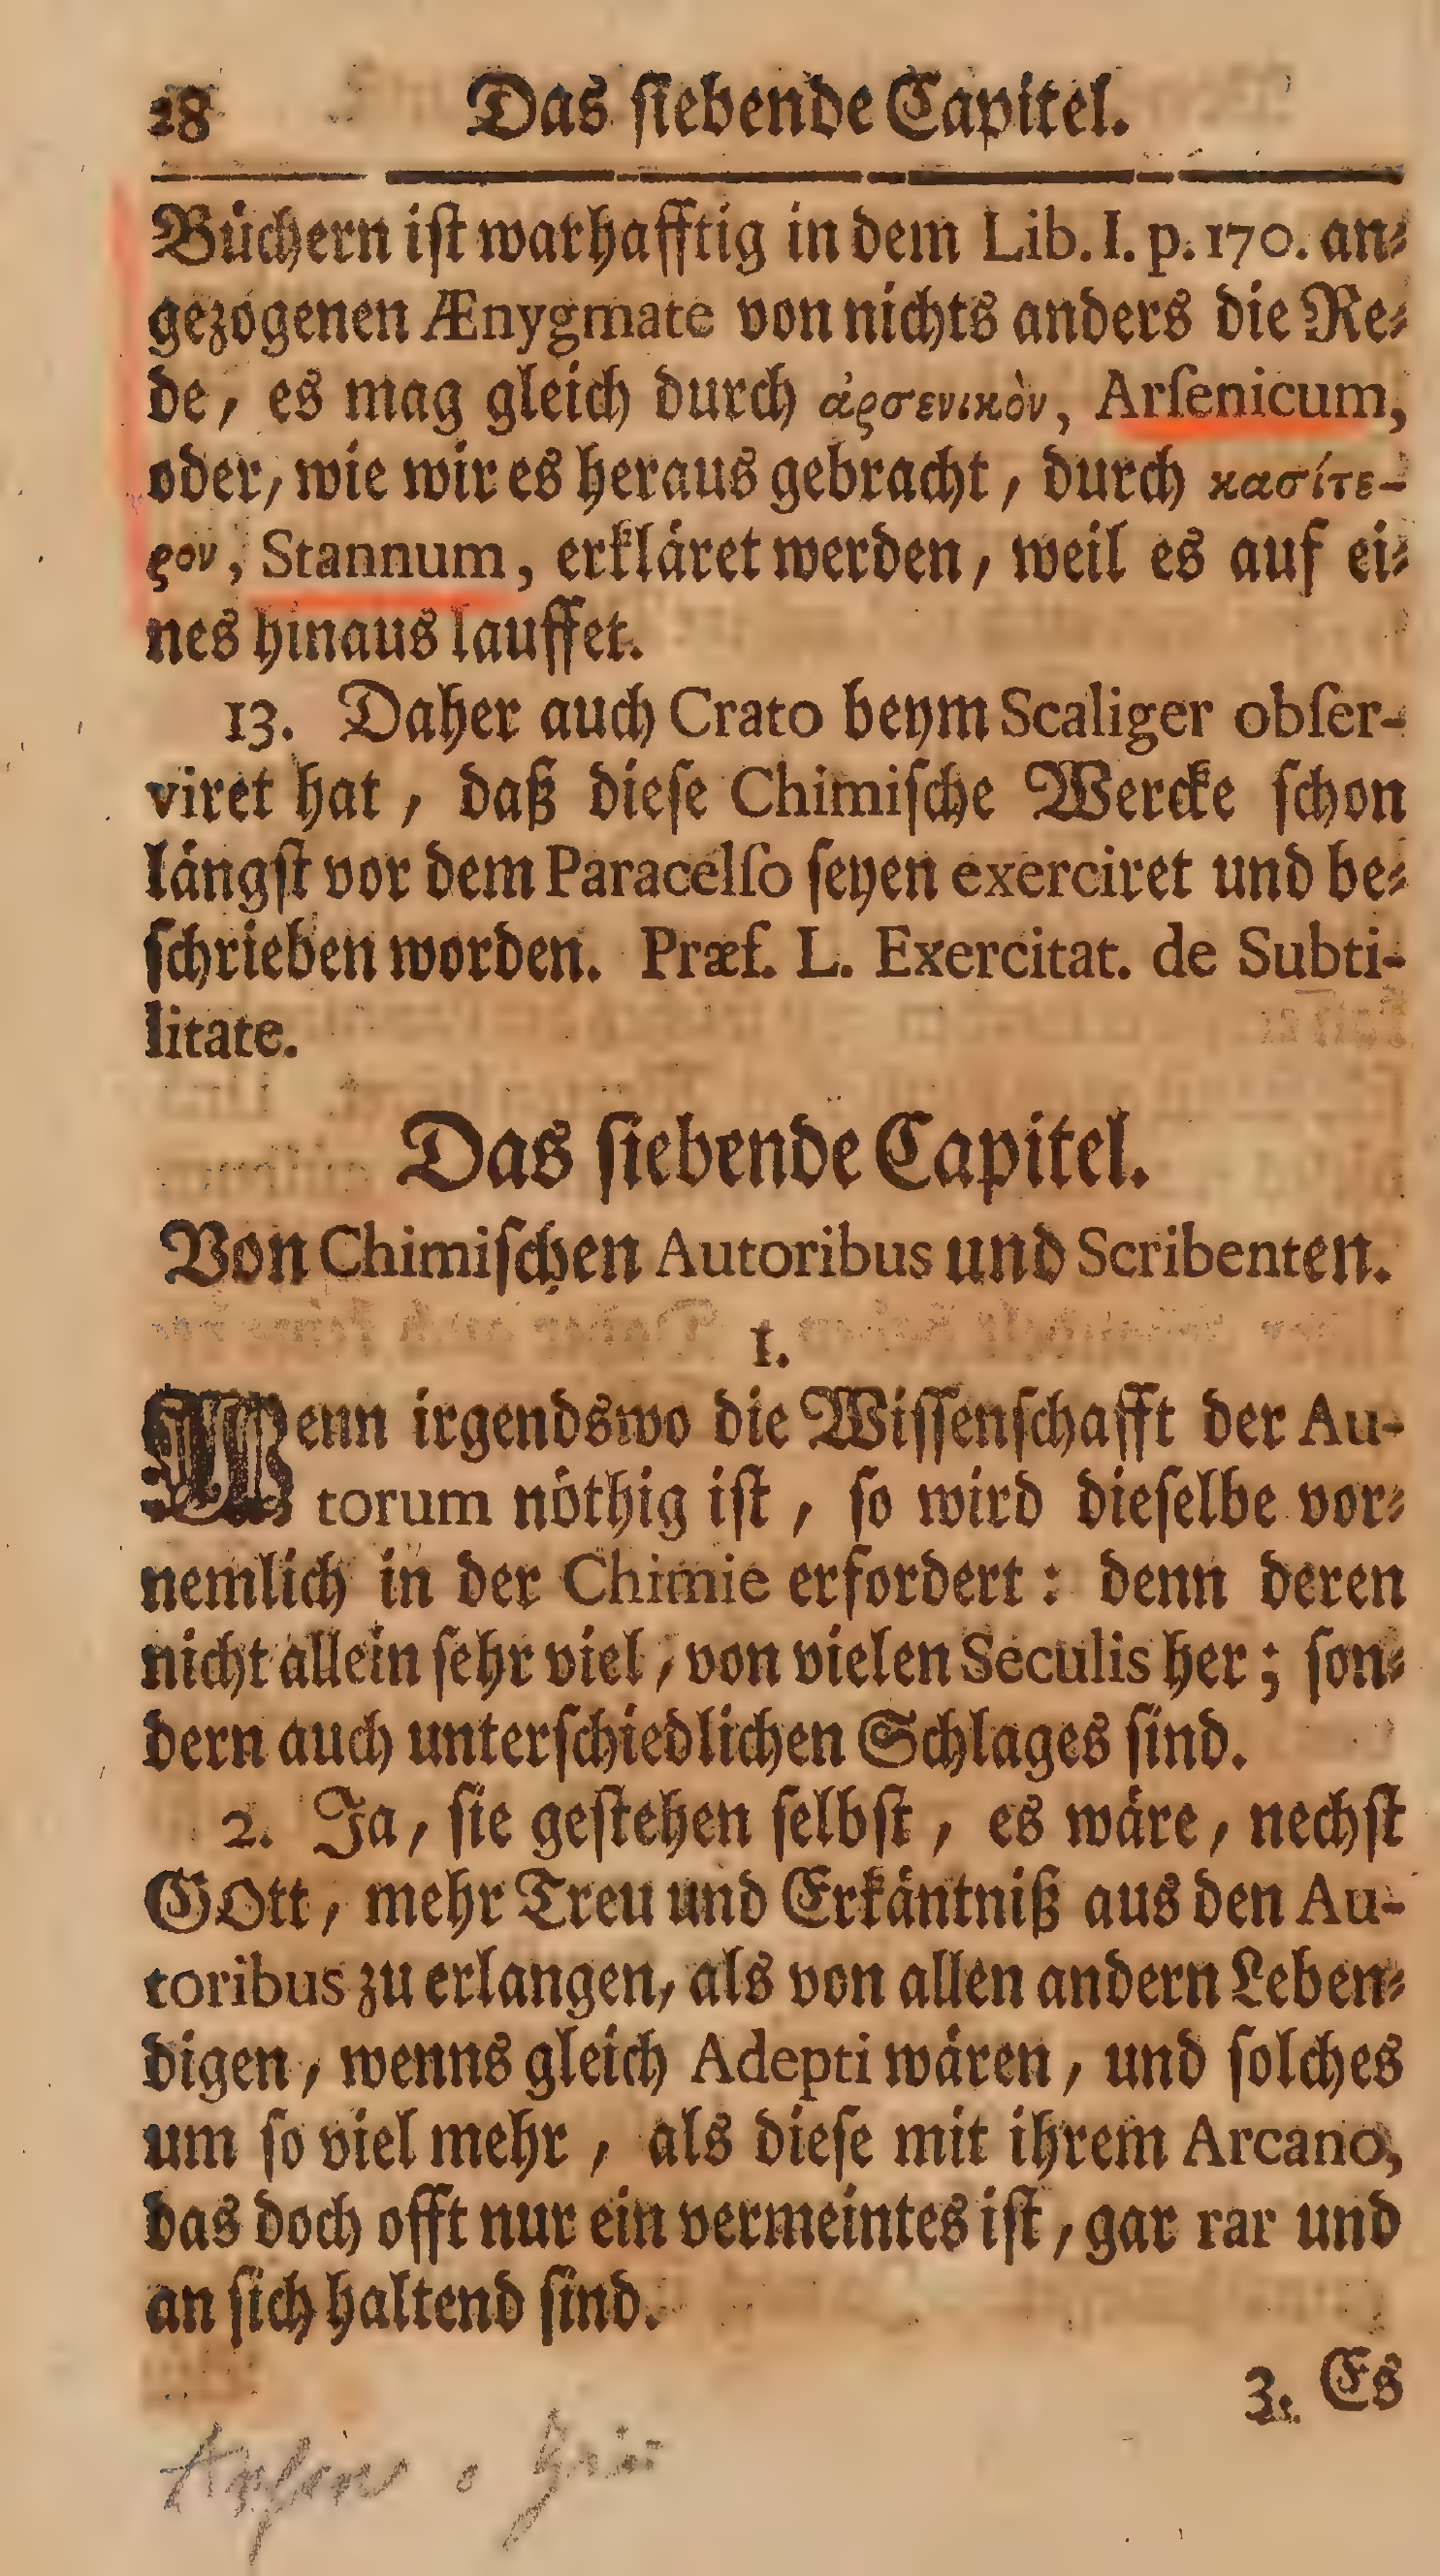 28 Das ſiebende Capitel.
Büchern iſt warhafftig in dem Lib. I. p. 170. an⸗
gezogenen Ænygmate von nichts anders die Re⸗
de, es mag gleich durch ἀρσενικὸν, Arſenicum,
oder, wie wir es heraus gebracht, durch κασίτε-
ρον, Stannum, erkläret werden, weil es auf ei⸗
nes hinaus lauffet.
13. Daher auch Crato beym Scaliger obſer-
viret hat, daß dieſe Chimiſche Wercke ſchon
längſt vor dem Paracelſo ſeyen exerciret und be⸗
ſchrieben worden. Præf. L. Exercitat. de Subti-
litate.
Das ſiebende Capitel.
Von Chimiſchen Autoribus und Scribenten.
1.
Wenn irgendswo die Wiſſenſchafft der Au-
torum nöthig iſt, ſo wird dieſelbe vor⸗
nemlich in der Chimie erfordert: denn deren
nicht allein ſehr viel, von vielen Seculis her; ſon⸗
dern auch unterſchiedlichen Schlages ſind.
2. Ja, ſie geſtehen ſelbſt, es wäre, nechſt
GOtt, mehr Treu und Erkäntniß aus den Au-
toribus zu erlangen, als von allen andern Leben⸗
digen, wenns gleich Adepti wären, und ſolches
um ſo viel mehr, als dieſe mit ihrem Arcano,
das doch offt nur ein vermeintes iſt, gar rar und
an ſich haltend ſind.
3. Es